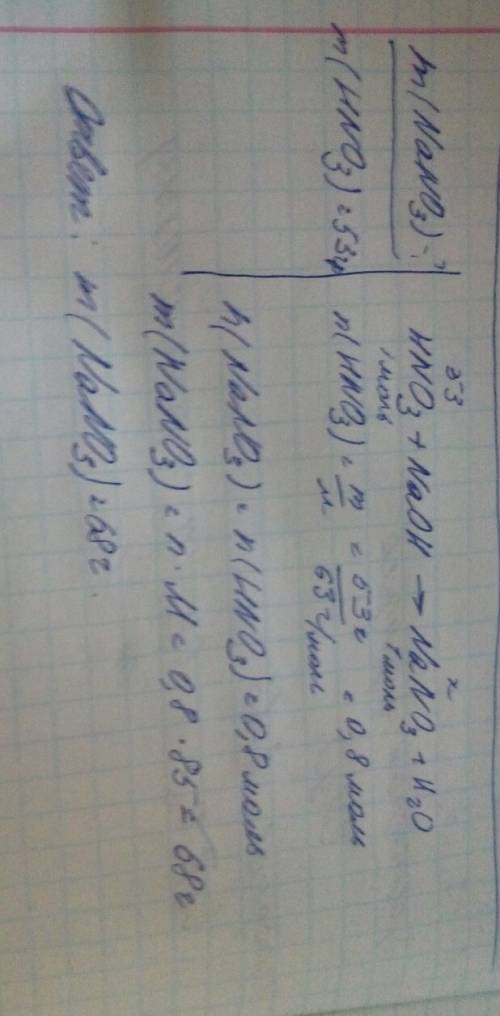 m(NaNO₃)-?
m(HNO₃)=53г
53 x
HNO₃ + NaOH → NaNO₃ + H₂O
1 моль 1 моль
n(HNO₃) = m/M = 53г/63 г/моль = 0,8 моль
n(NaNO₃) = n(HNO₃) = 0,8 моль
m(NaNO₃) = n·M = 0,8·85 = 68г
Ответ: m(NaNO₃)=68г.